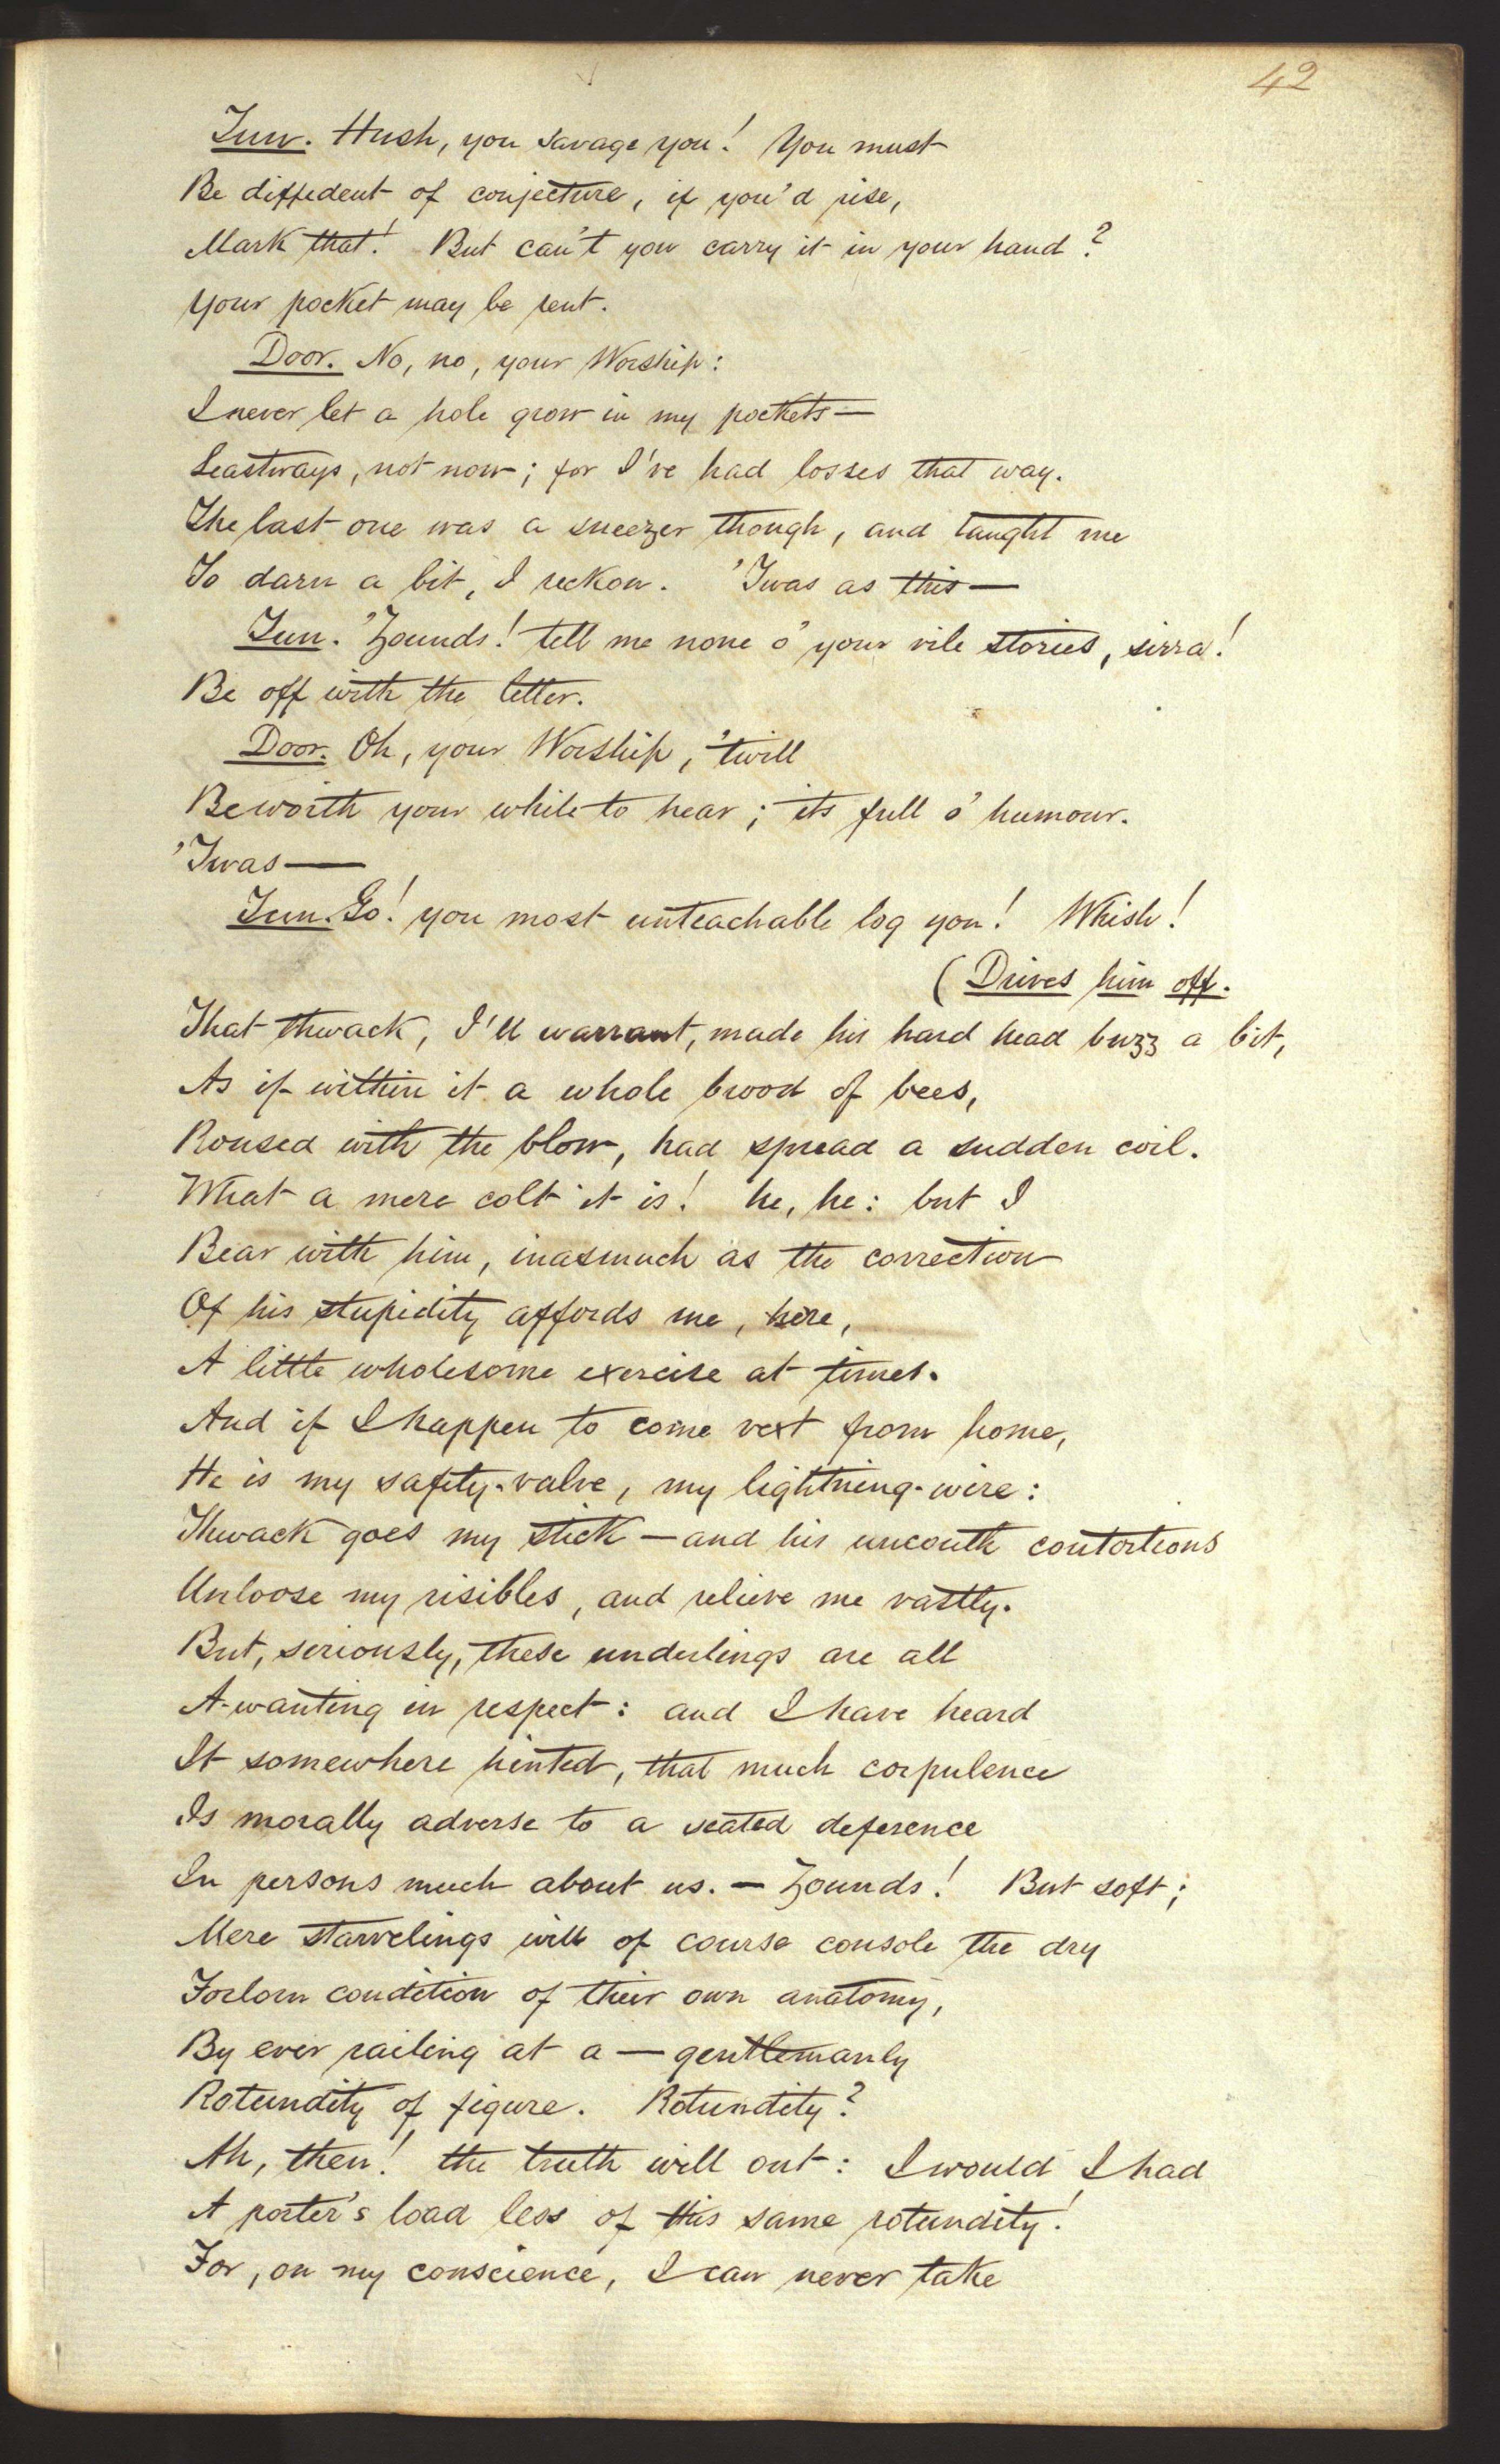 42
Tun. Hush, you savage you! You must
Be diffident of conjecture, if you'd rise,
Mark that! But can't you carry it in your hand?
Your pocket may be rent.
Door. No, no, your Worship:
I never let a hole grow in my pockets—
Leastways, not now; for I've had losses that way.
The last one was a sneezer though, and taught me
To darn a bit, I reckon. 'Twas as this—
Tun. 'Zounds! tell me none o' your vile stories, sirra!
Be off with the letter.
Door. Oh, your Worship, 'twill
Be worth your while to hear; its full o' humour.
'Twas—
Tun. Go! you most unteachable log you! Whish!
(Drives him off.
That thwack, I'll warrant, made his hard head buzz a bit,
As if within it a whole brood of bees,
Roused with the blow, had spread a sudden coil.
What a mere colt it is! he, he: but I
Bear with him, inasmuch as the correction
Of his stupidity affords me, here,
A little wholesome exercise at times.
And if I happen to come vext from home,
He is my safety-valve, my lightning-wire:
Thwack goes my stick—and his uncouth contortions
Unloose my risibles, and relieve me vastly.
But, seriously, these underlings are all
A-wanting in respect: and I have heard
It somewhere hinted, that much corpulence
Is morally adverse to a seated deference
In persons much about us.—Zounds! But soft;
Mere starvelings will of course console the dry
Forlorn condition of their own anatomy,
By ever railing at a—gentlemanly
Rotundity of figure. Rotundity?
Ah, then! the truth will out: I would I had
A porter's load less of this same rotundity!
For, on my conscience, I can never take